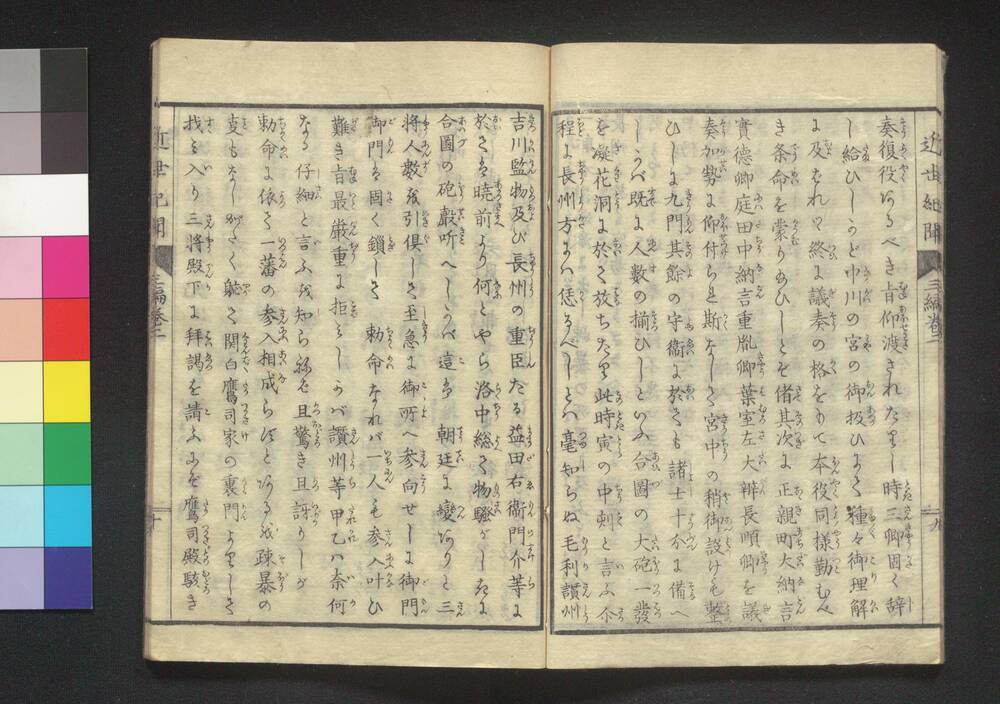 近世紀聞
三編巻二
九
奏復役あるべき旨仰渡されたりし時三卿固く辞
し給ひしかど中川の宮の御扱ひにて種々御理解
に及ばれて終に議奏の格をもて本役同様勤むべ
き条命を蒙りぬひしとぞ偖其次に正親町大納言
實徳卿庭田中納言重胤卿葉室左大辨長順卿を議
奏加勢に仰付られ斯なして宮中の稍御設けも整
ひしに九門其餘の守衞に於ても諸士十分に備へ
しかば既に人数の揃ひしといふ合圖の大砲一發
を凝花洞に於て放ちたり此時寅の中刻と言ふ
程に長州方にハ恁るべしとハ毫知らぬ毛利讃州
吉川監物及び長州の重臣たる益田右衞門介等ハ
於さる時前より何とやら洛中総て物騒がしきに
合圖の砲聲听へしかバ這ハ朝廷に變ありと三
将人數を引倶して至急に御所へ参向せしに御門
御門を固く鎖して勅命なれバ一人も参入叶ひ
難き旨最嚴重に拒みしかバ讃州等甲乙ハ奈何
なる仔細と言ふを知らねど且驚き且訝りしが
勅命に依て一藩の参入相成らずとあるを疎暴の
支もなしがたく躰て関白鷹司家の裏門よりして
找み入り三将殿下に拝謁を請ふにぞ鷹司殿駭き
近世紀聞
三編巻二
十